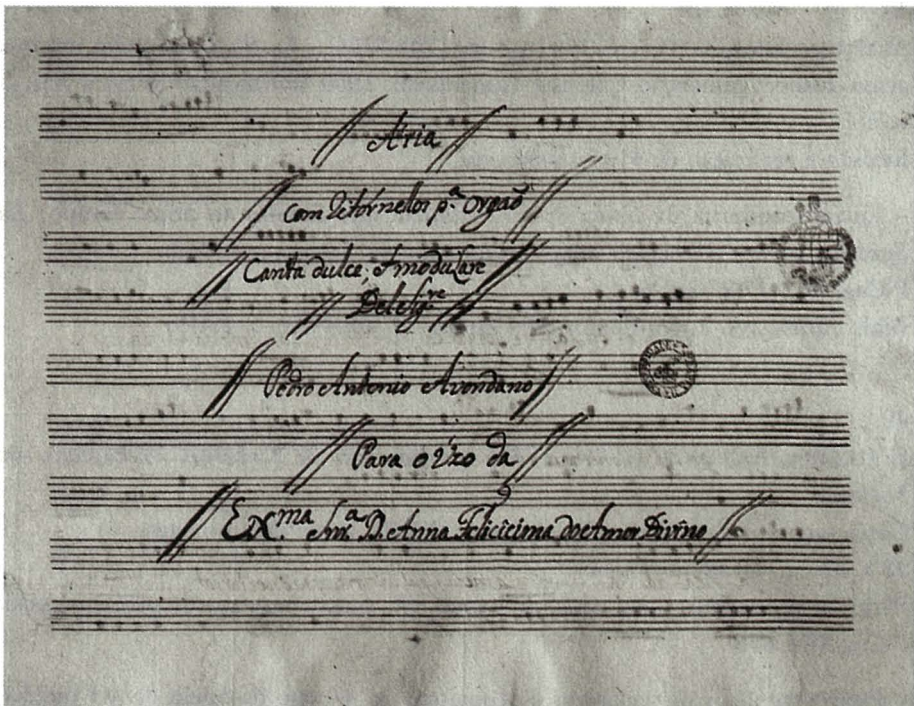 Aria
Com Ritornellos p.ª Orgaõ
Canta dulcé, et modulare
Del Sig.re
Pedro Antonio Avondano
Para o Vzo da
Ex.ma Snr.ª D. Anna Felicicima do Amor Divino